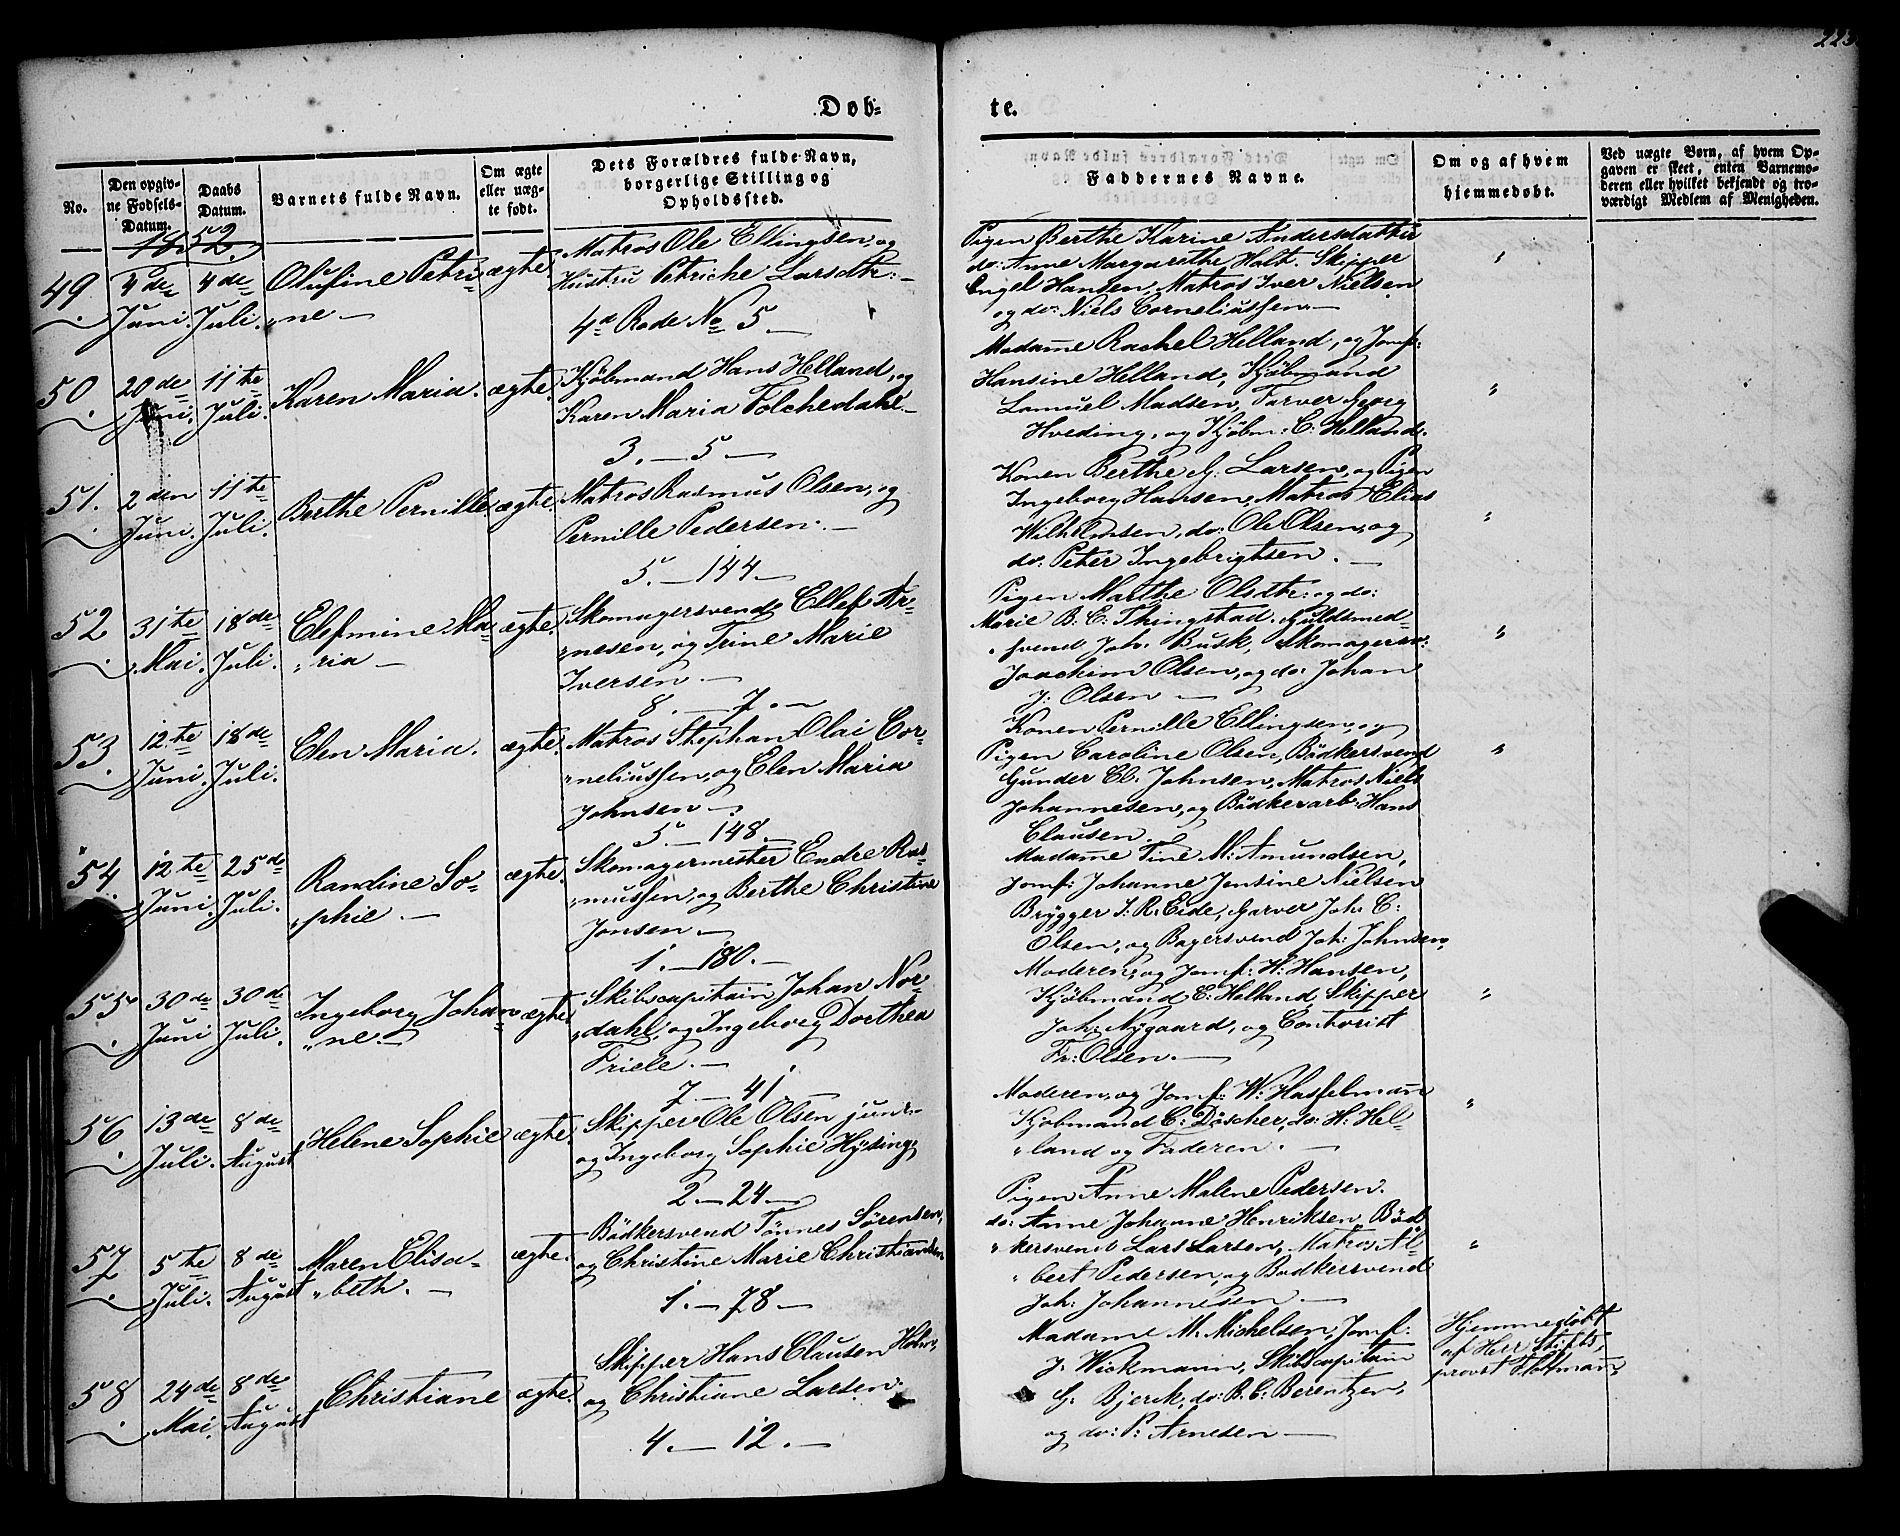 223
Døb-
te.
No.
Den opgiv-
ne Fødsels-
Datum.
Daabs
Datum.
Barnets fulde Navn.
Om ægte
eller uæg-
te født.
Dets Forældres fulde Navn,
borgerlige Stilling og
Opholdssted.
Faddernes Navne.
Om og af hvem
hjemmedøbt.
Ved uægte Børn, af hvem Op-
gaven er skeet, enten Barnemo-
deren eller hvilket bekjendt og tro-
værdigt Medlem af Menigheden.
1852.
49. 4de Juni. 4de Juli. Olufine Petri-
"ne - ægte.
Matros Ole Ellingsen, og
Hustru Petriche Larsdtr: -
4d Rode No 5 -
Pigen Berthe Karine Andersdatter
do: Anne Margarethe Holt. Skipper
Engel Hansen, Matros Iver Nielsen
og do: Niels Corneliussen. -
"
50. 20de Juni. 11te Juli. Karen Maria. ægte.
Kjöbmand Hans Helland, og
Karen Maria Tolchedahl. -
3. - 5 -
Madame Rachel Helland, og Jomf:
Hansine Helland, Kjöbmand
Samuel Madsen, Farver Georg
Hveding, og Kjöbm: C: Helland.
"
51. 2den Juni. 11te Juli. Berthe Pernille. ægte.
Matros Rasmus Olsen, og
Pernille Pedersen. -
5. - 144 -
Konen Berthe G. Larsen, og Pigen
Ingeborg Hansen, Matros Elias
Wilhelmsen, do: Ole Olsen, og
do: Peter Ingebrigtsen. -
"
52. 31te Mai. 18de Juli. Elefmine Ma-
"ria - ægte.
Skomagersvend Ellef Ar-
"nesen, og Trine Marie
Iversen. -
8. - 7. -
Pigen Marthe Olsdtr: og do:
Marie B. C. Thingstad. Guldsmed-
"svend Joh. Busk, Skomagersv:
Joachim Olsen, og do: Johan
J: Olsen -
"
53. 12te Juni. 18de Juli. Elen Maria. ægte.
Matros Stephan Olai Cor-
"neliussen, og Elen Maria
Johnsen -
5. - 148.
Konen Pernille Ellingsen, og
Pigen Caroline Olsen, Bödkersvend
Gunder Cl. Johnsen, Matros Niels
Johannesen, og Bödkerarb: Hans
Clausen. -
"
54. 12te Juni. 25de Juli. Randine So-
"phie. - ægte.
Skomagermester Endre Ras-
"mussen, og Berthe Christine
Jonsen -
1. - 180. -
Madame Tine M: Amundsen,
Jomf: Johanne Jensine Nielsen
Brygger J. R. Eide, Garver Joh. C:
Olsen, og Bagersvend Joh: Johnsen,
55. 30de Juni 30de Juli. Ingeborg Johan-
"ne. - ægte.
Skibscapitain Johan Nor-
"dahl, og Ingeborg Dorthea
Friele. -
7. - 41. -
Moderen, og Jomf: H: Hansen,
Kjöbmand E: Helland, Skipper
Joh: Nygaard, og Contorist
Fr: Olsen. -
"
56. 13de Juli. 8de August Helene Sophie ægte.
Skipper Ole Olsen junr.
og Ingeborg Sophie Hysing.
2. - 24 -
Moderen, og Jomf: W. Hasselmann
Kjöbmand C: Döscher, do: H: Hel-
"land og Faderen. -
"
57. 5te Juli. 8de August Maren Elisa-
"beth. - ægte.
Bödkersvend Tönnes Sörensen,
og Christine Marie Christiansen.
1. - 78 -
Pigen Anne Malene Pedersen.
do: Anne Johanne Henriksen, Böd-
"kersvend Lars Larsen, Matros Al-
"bert Pedersen, og Bödkersvend
Joh: Johannesen -
"
58. 24de Mai. 8de August Christiane ægte.
Skipper Hans Clausen
og Christiane Larsen.
4. - 12. -
Madame M. Michelsen, Jomf:
J. Wickmann, Skibscapitain
G. Bjerck, do: B. C. Berentzen,
og do: P. Arnesen -
Hjemmedöbt
af Herr Stifts-
provst